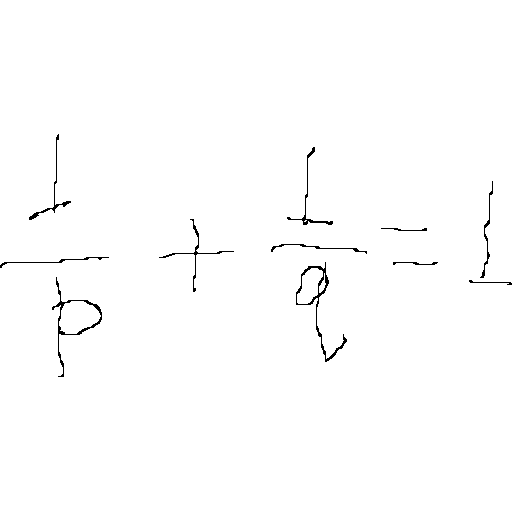 \frac{1}{p} + \frac{1}{q} = 1